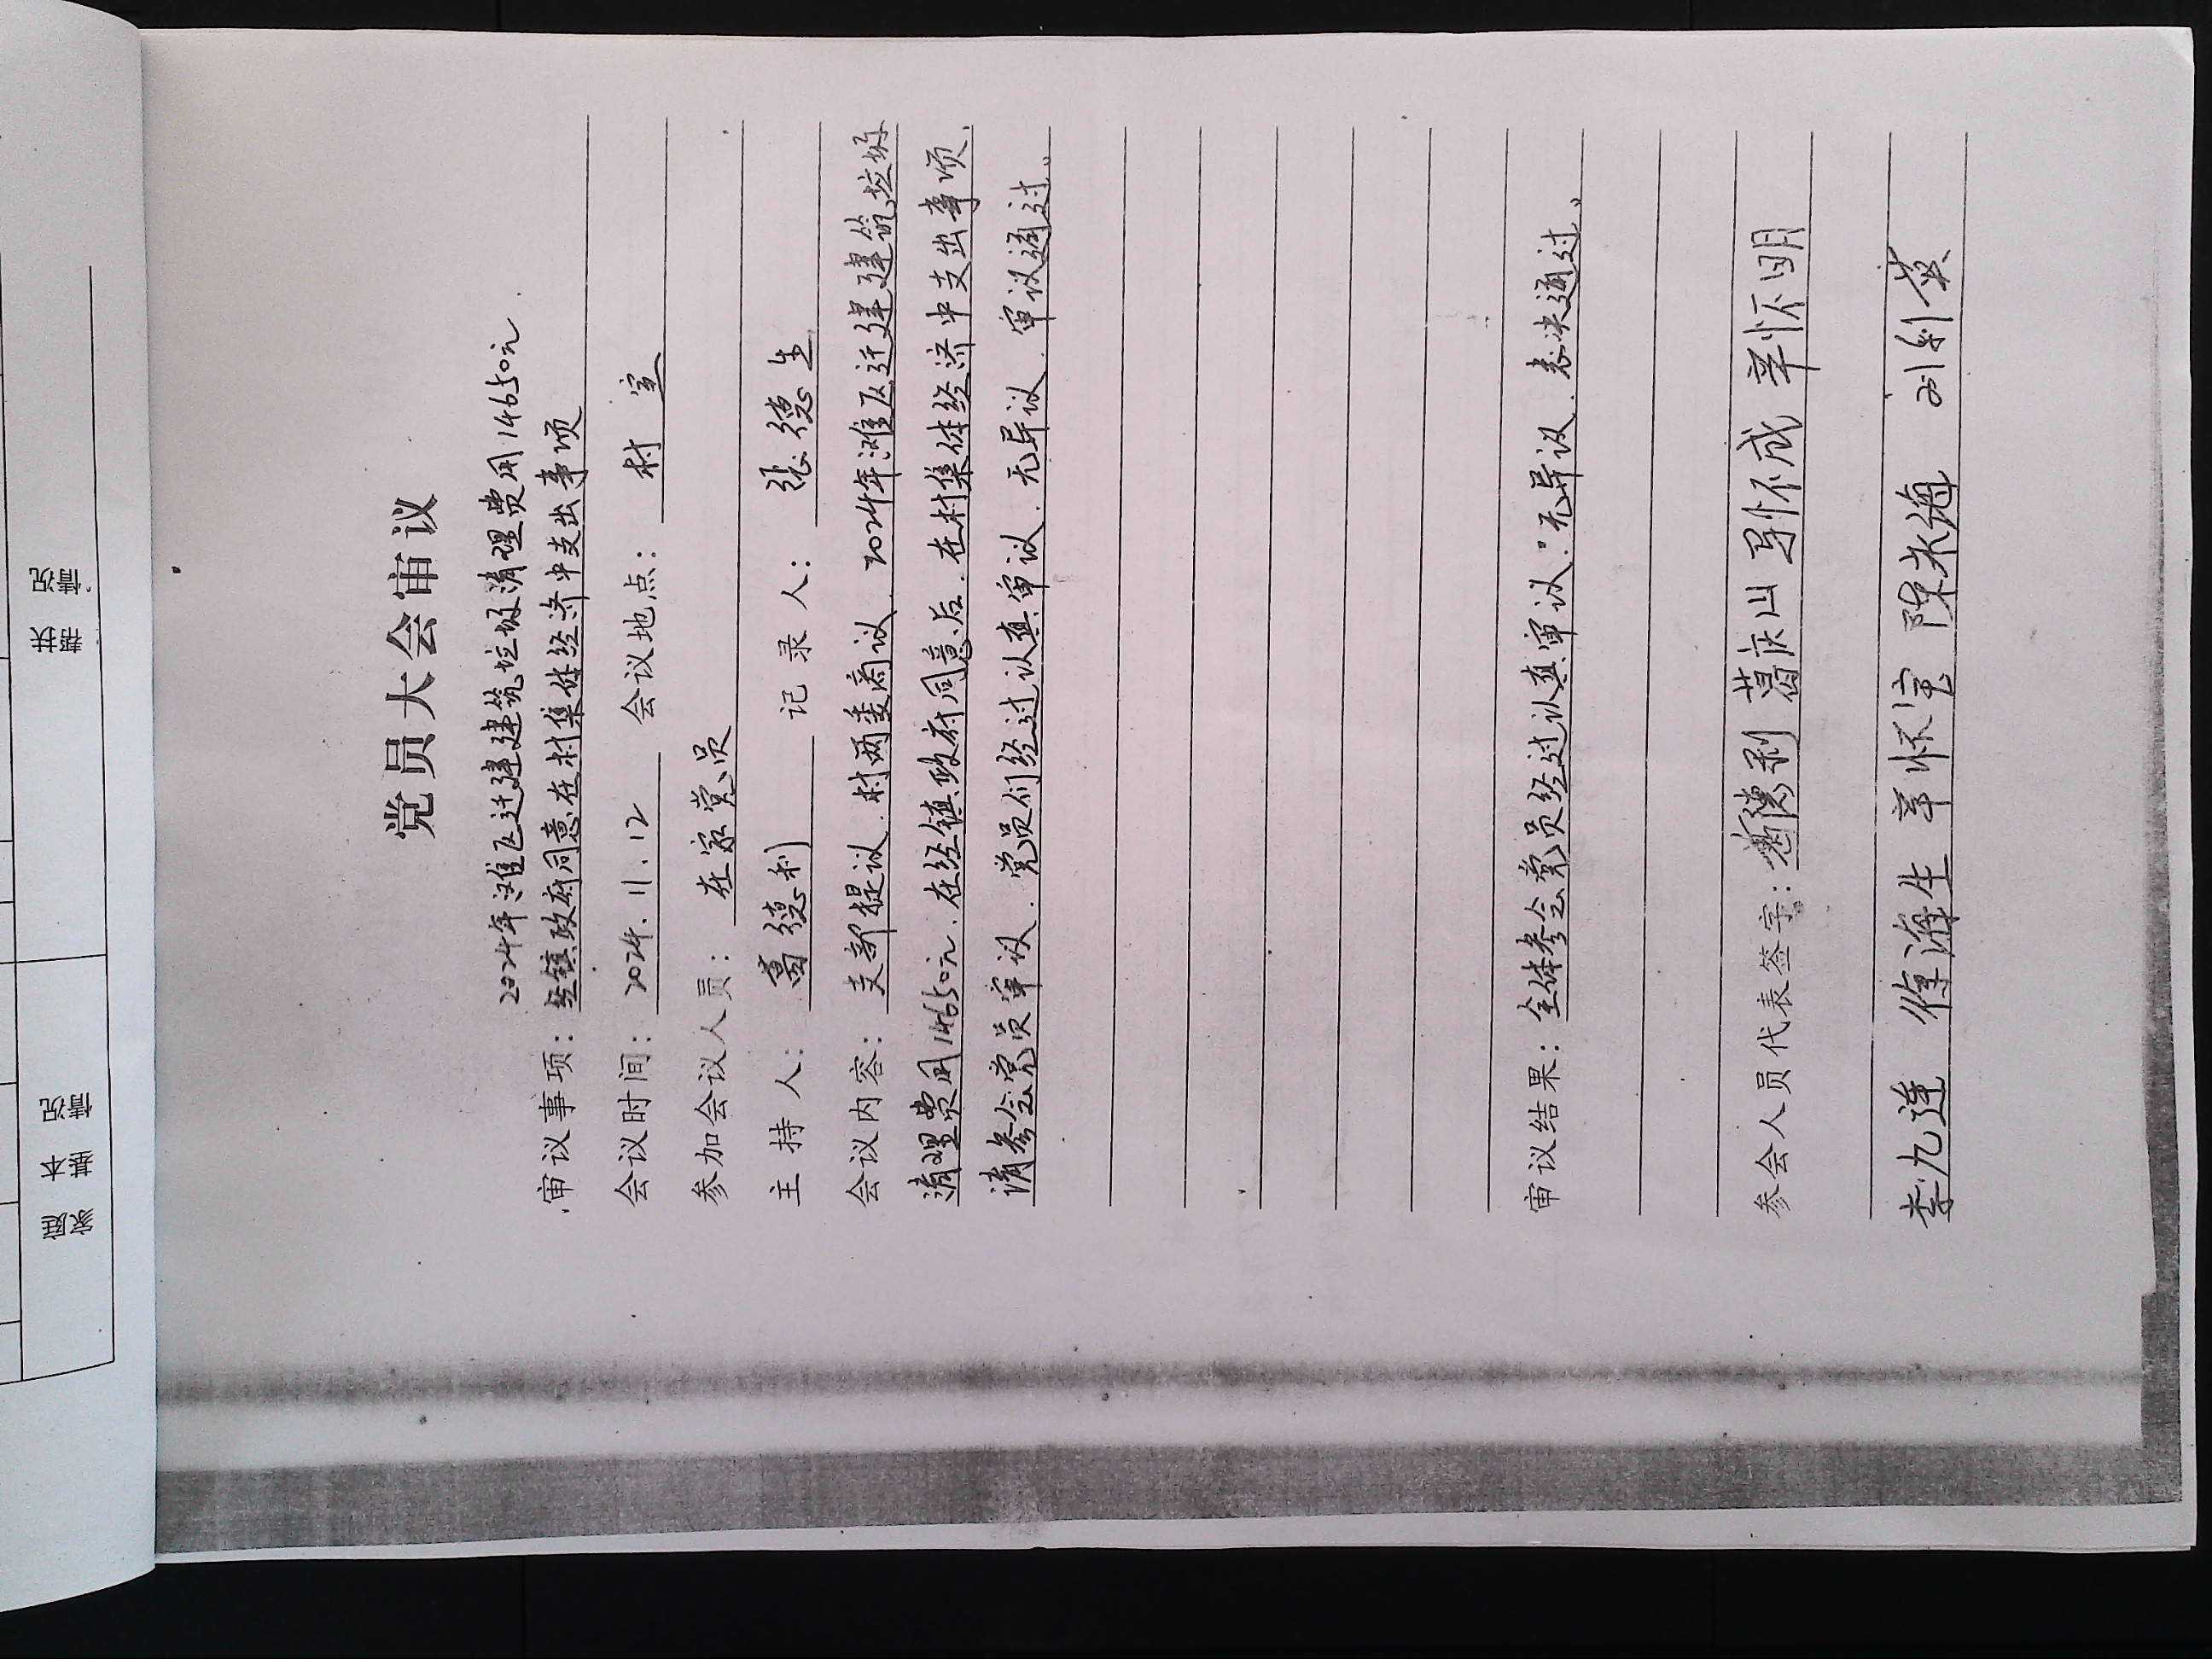 党员大会审议
2024年滩区迁建建筑垃圾清理费用14650元.
审议事项：经镇政府同意在村集体经济中支出事项
会议时间：2024.11.12 会议地点：村室
参加会议人员：在家党员
主持人：葛德利 记录人：张德生
会议内容：支部提议.村两委商议.2024年滩区迁建建筑垃圾
清理费用14650元.在经镇政府同意后.在村集体经济中支出事项.
请参会党员审议.党员们经过认真审议.无异议.审议通过。
审议结果：全体参会党员经过认真审议.无异议.表决通过。
参会人员代表签字：德利 葛庆山 怀成 辛怀明
李九连 徐海生 辛怀宝 陈米海 刘利英
家庭基本情况
帮扶情况